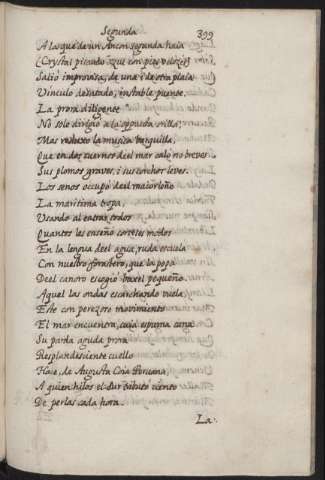 Segunda 399
A la que de un Ancon segunda haia
(Crystal pisando azul con pies veloces)
Salio improuisa, de una i de otra plaia
Vinculo desatado, instable puente.
La prora diligente
No solo dirigio a la oppuesta orilla;
Mas reduxo la musica barquilla,
Que en dos cuernos de el mar calò no breues
Sus plomos graues, i sus corchos leues.
Los senos occupò de el maior leño
La maritima tropa,
Usando al entrar todos
Quantos les enseñò corteses modos
En la lengua de el agua, ruda escuela
Con nuestro forastero, que la popa
De el canoro escogiò baxel pequeño.
Aquel las ondas escarchando vuela
Este con perezoso mouimiento
El mar encuentra, cuia espuma cana
Su parda aguda prora
Resplandesciente cuello
Haze, de Augusta Coia Peruana,
A quien hilos el Sur tributò ciento
De perlas cada hora.
La.